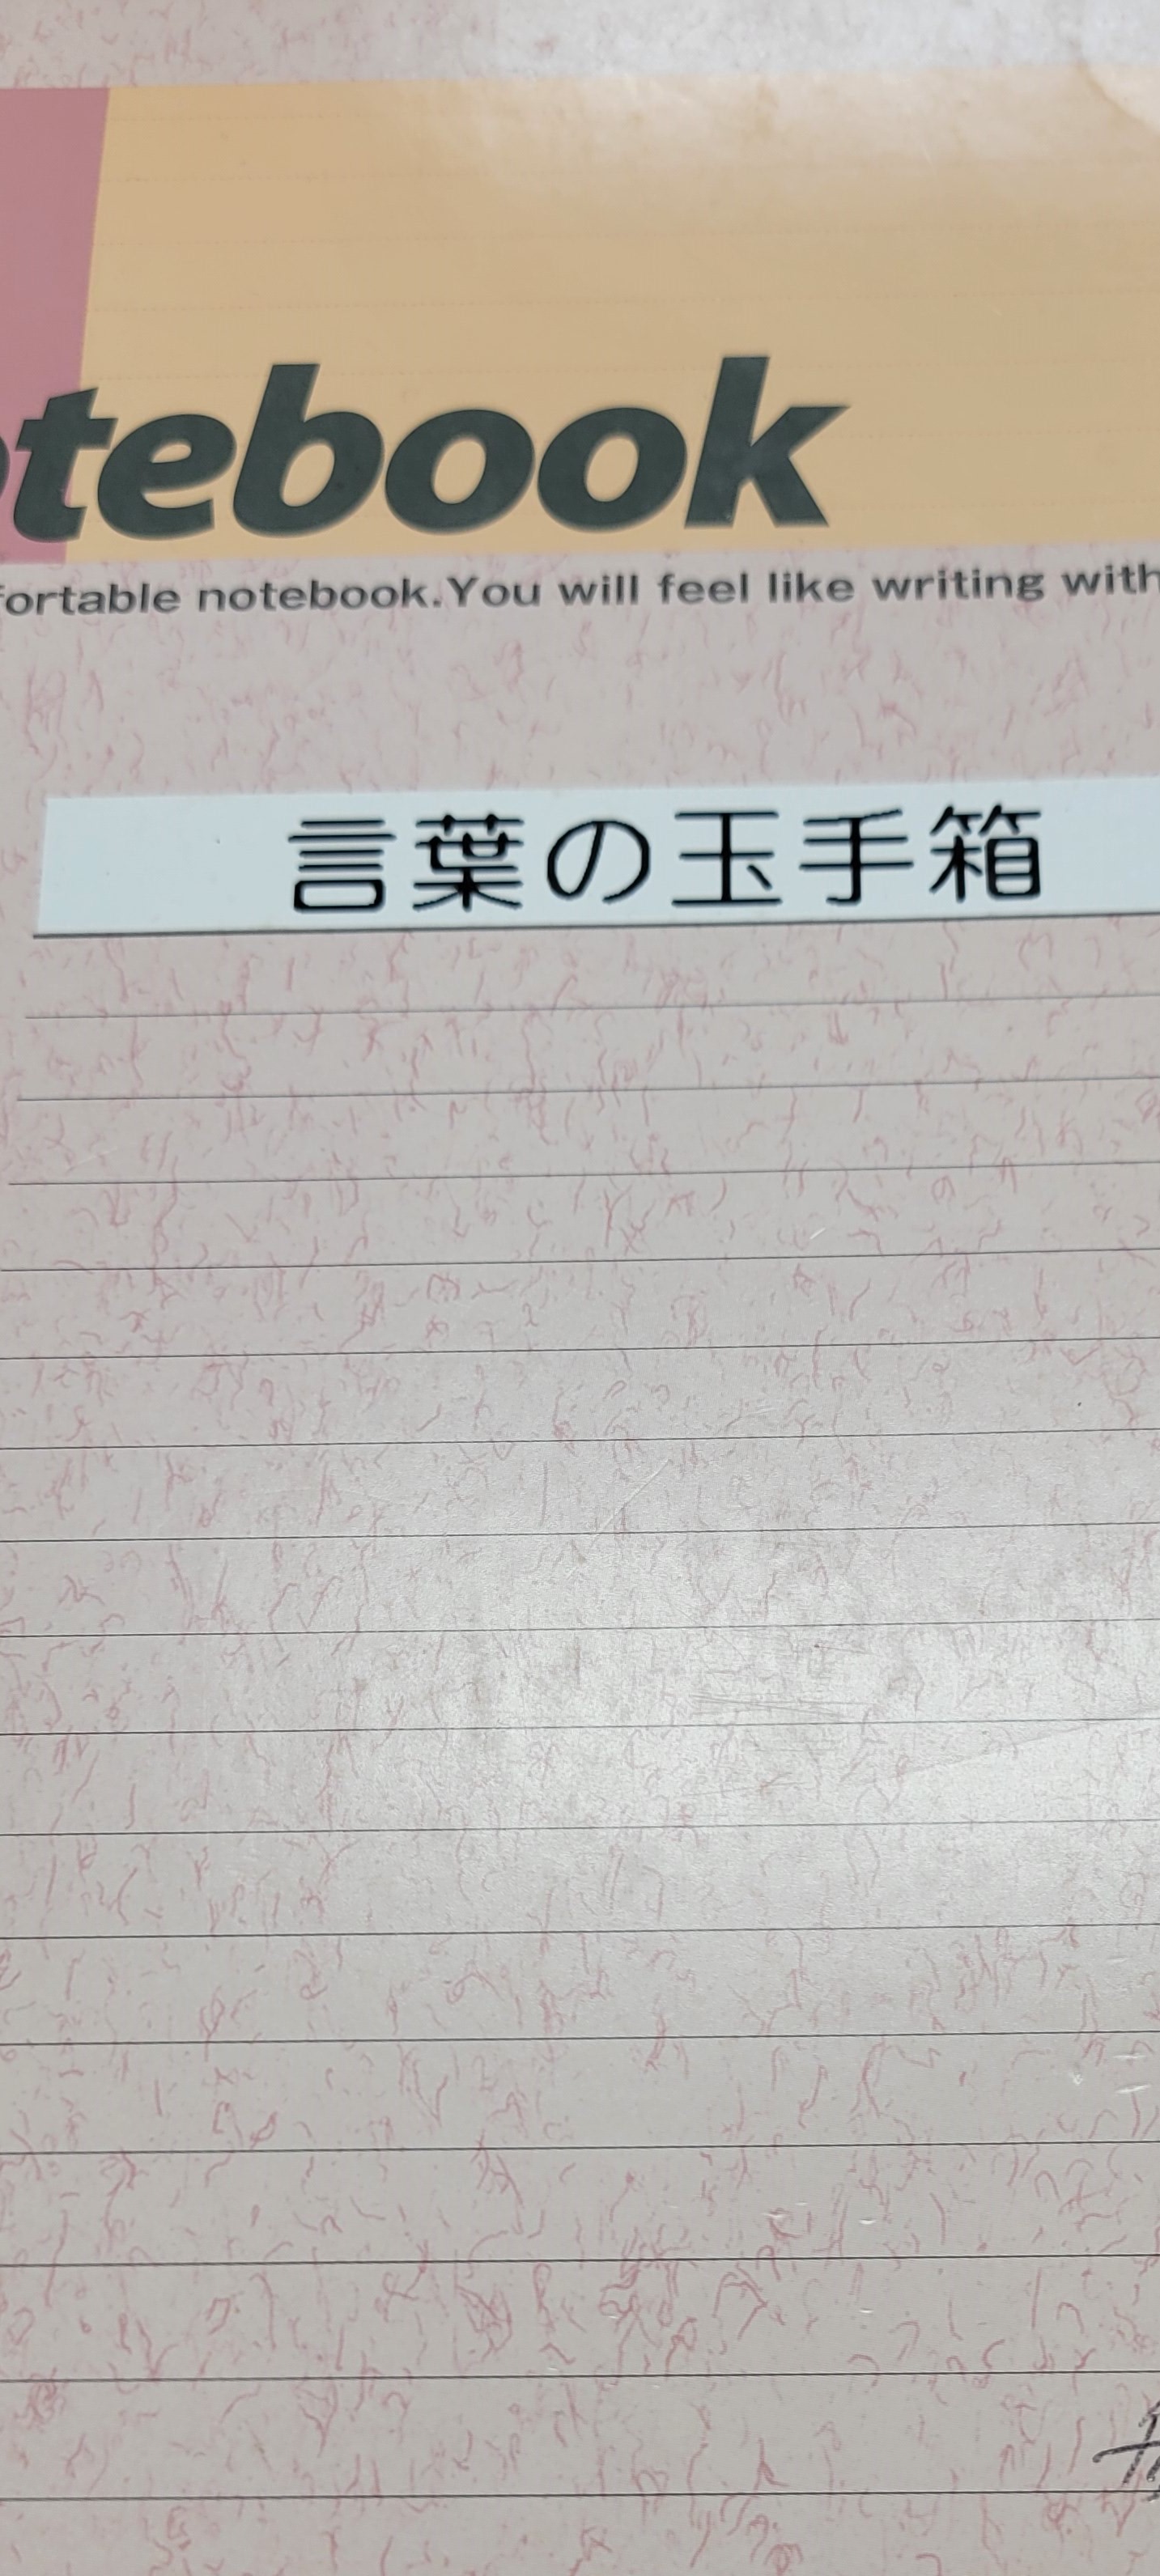 otebook
fortable notebook.You will feel like writing with
言葉の玉手箱